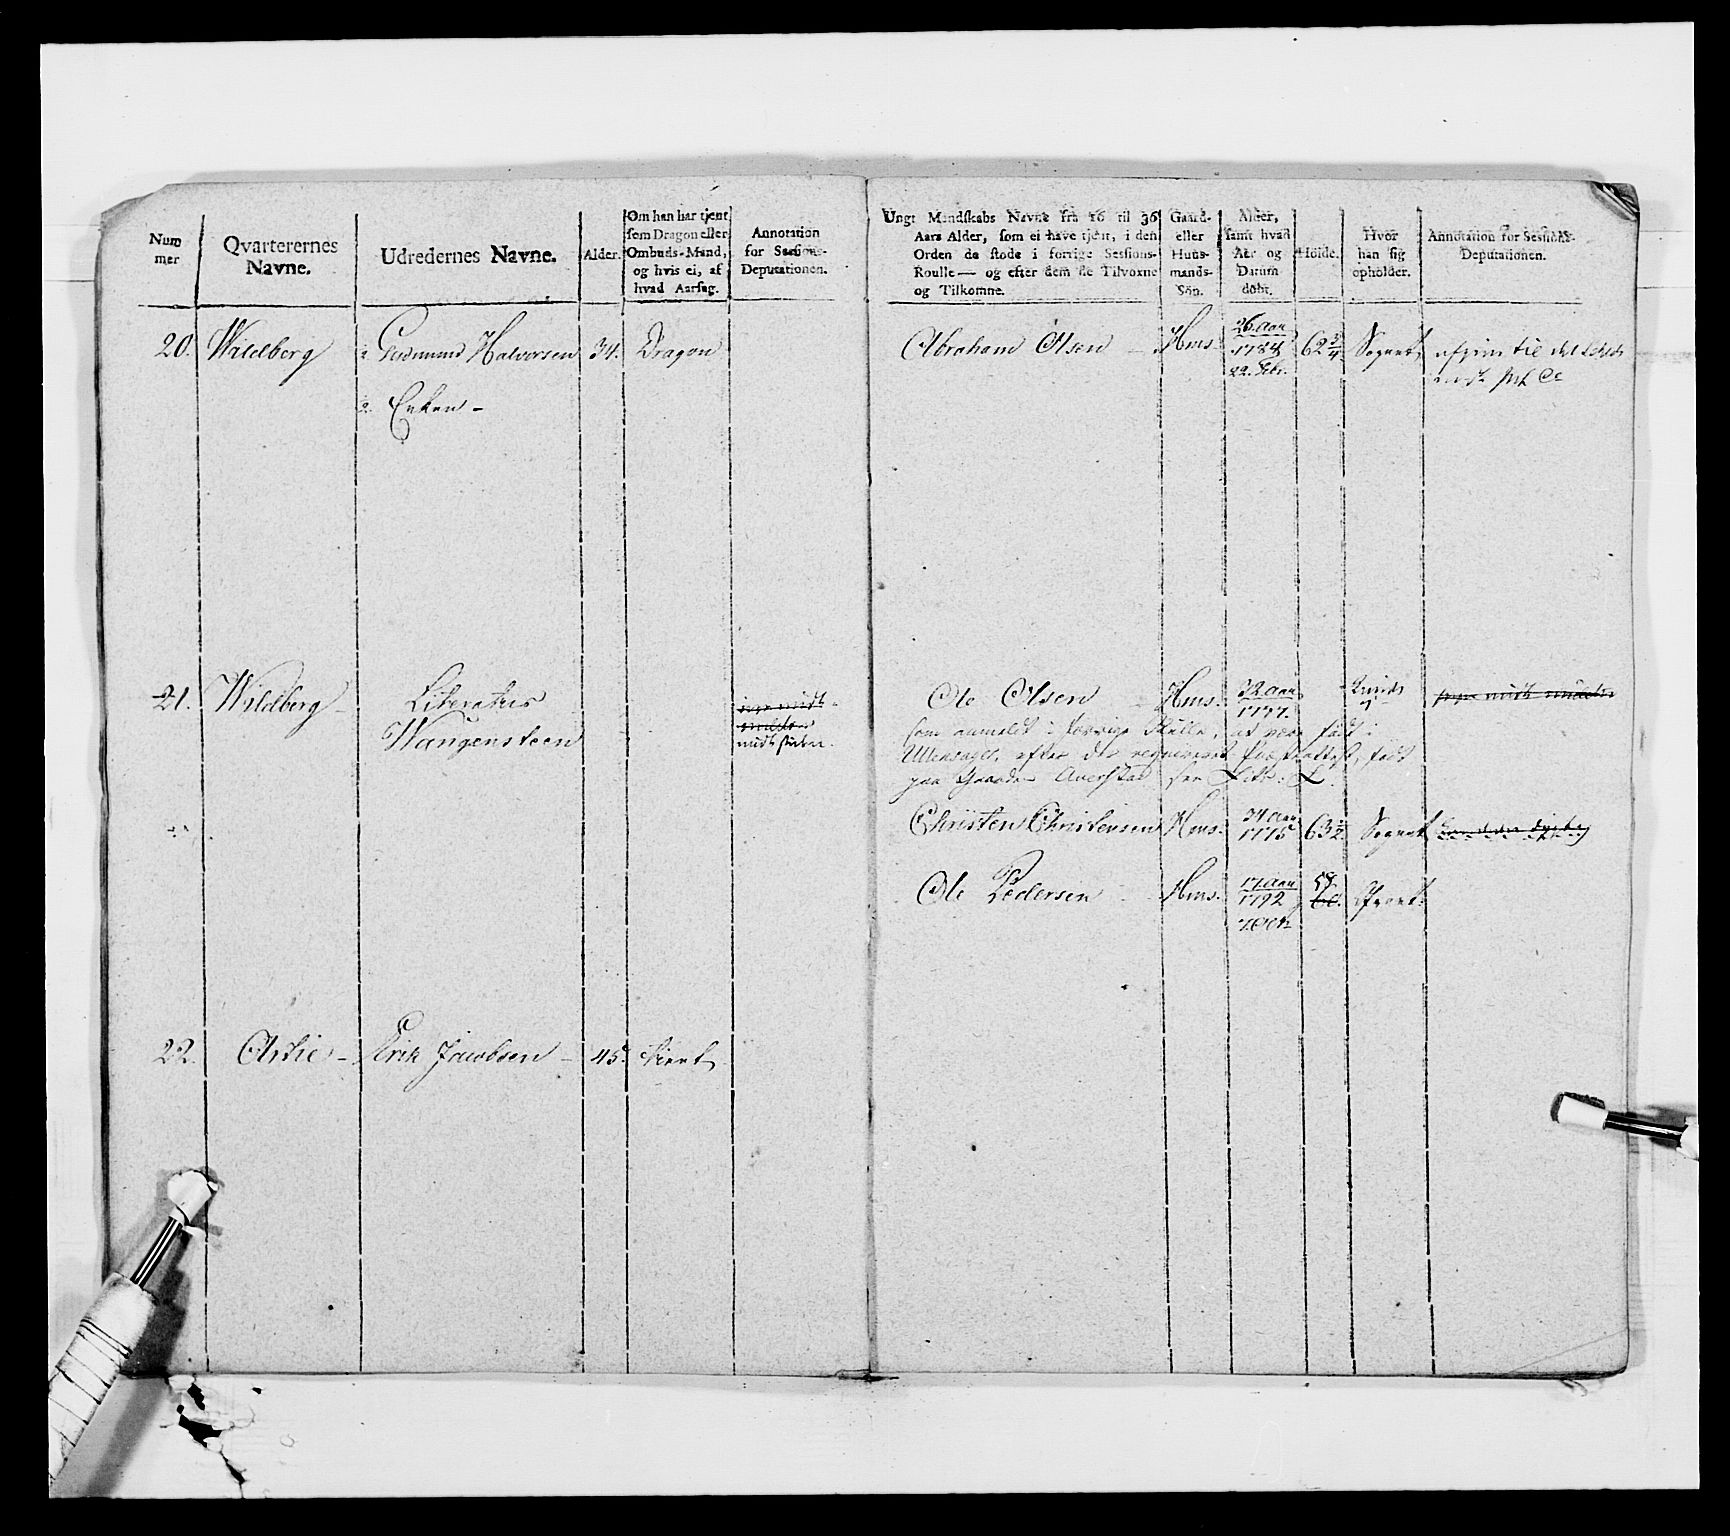 Num
mer
Qvarterernes
Navne.
Udredernes Navne.
Alder.
Om han har tjent
som Dragon eller
Ombuds-Mand,
og hvis ei, af
hvad Aarsag.
Annotation
for Sessions-
Deputationen.
Ungt Mandskabs Navne fra 16 til 36
Aars Alder, som ei have tjent, i den
Orden de stode i forrige Sessions-
Roulle — og efter dem de Tilvoxne
og Tilkomne.
Gaard-
eller
Huus-
mands-
Sön.
Alder,
samt hvad
Aar og
Datum
döbt.
Höide.
Hvor
han sig
opholder.
Annotation for Sessions-
Deputationen.
20. Wildberg 1. Gudmund Halvorsen 34. Dragon
2. Enken -
Abraham Olsen - Hms. 26 Aar 1784 22. Febr. 62 3/4 Sognet
til det
21. Wildberg - Literatus
Wangensteen
Ole Olsen - Hms. 32 Aar 1777.
som anmeldt i forrige Rulle, at være født i
Ullensager, efter den Præsteattest, født
paa Gaarden see Litr: L.
Christen Christensen Hms. 34 Aar 1775 63 1/2 Sognet
Ole Pedersen - Hms. 17 Aar 1792 7. Oct 58
22. Astie - Erik Jacobsen - 45. tient